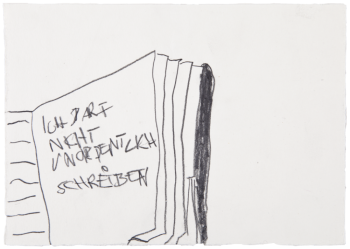 ICH DARF
NICHT
UNORDENTLICH
SCHREIBEN